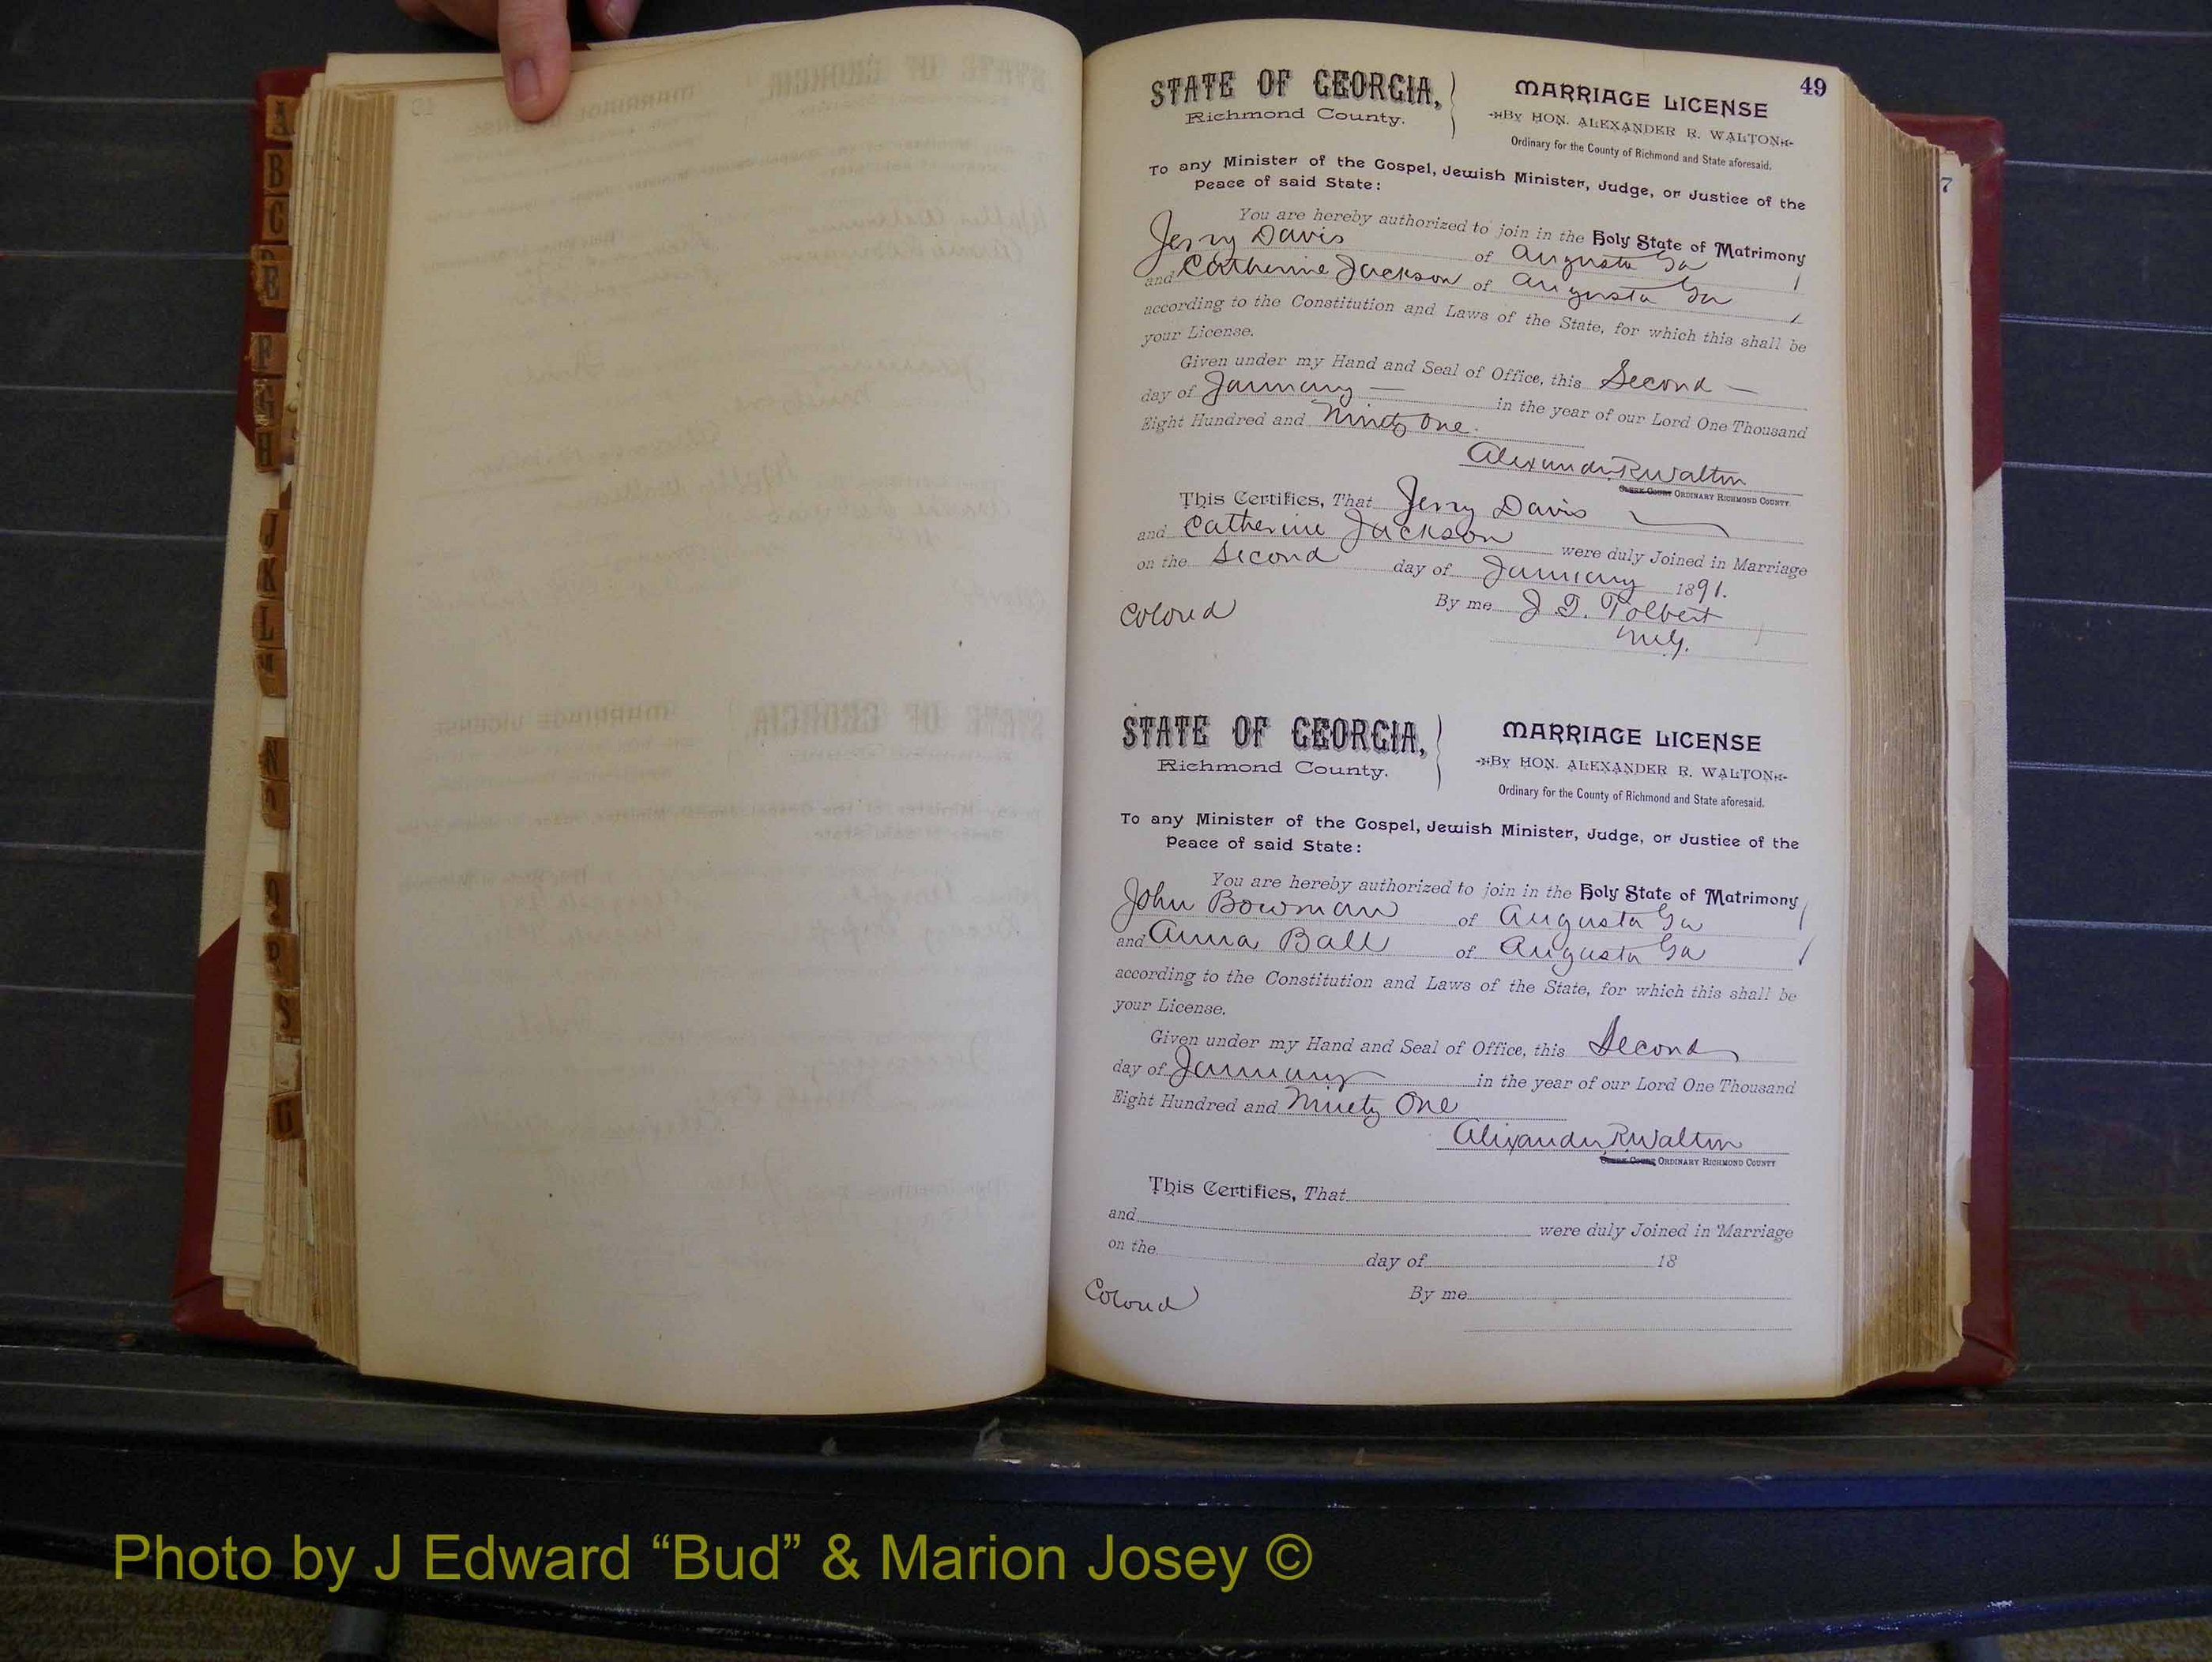 49
STATE OF GEORGIA,
Richmond County.
MARRIAGE LICENSE
BY HON. ALEXANDER R. WALTON
Ordinary for the County of Richmond and State aforesaid.
To any Minister of the Gospel, Jewish Minister, Judge, or Justice of the
Peace of said State:
You are hereby authorized to join in the Holy State of Matrimony
Jerry Davis of Augusta Ga
and Catherine Jackson of Augusta Ga
according to the Constitution and Laws of the State, for which this shall be
your License.
Given under my Hand and Seal of Office, this Second
day of January in the year of our Lord One Thousand
Eight Hundred and Ninety One.
Alexander R Walton
CLERK COURT ORDINARY RICHMOND COUNTY
This Certifies, That Jerry Davis
and Catherine Jackson were duly Joined in Marriage
on the Second day of January 1891.
By me J. T. Tolbert
M.G.
Colored
STATE OF GEORGIA,
Richmond County.
MARRIAGE LICENSE
BY HON. ALEXANDER R. WALTON
Ordinary for the County of Richmond and State aforesaid.
To any Minister of the Gospel, Jewish Minister, Judge, or Justice of the
Peace of said State:
You are hereby authorized to join in the Holy State of Matrimony
John Bowman of Augusta Ga
and Anna Ball of Augusta Ga
according to the Constitution and Laws of the State, for which this shall be
your License.
Given under my Hand and Seal of Office, this Second
day of January in the year of our Lord One Thousand
Eight Hundred and Ninety One
Alexander R Walton
CLERK COURT ORDINARY RICHMOND COUNTY
This Certifies, That
and were duly Joined in Marriage
on the day of 18
By me
Colored
A
B
C
E
F
G
H
J
K
L
M
N
O
P
S
7
Photo by J Edward “Bud” & Marion Josey ©